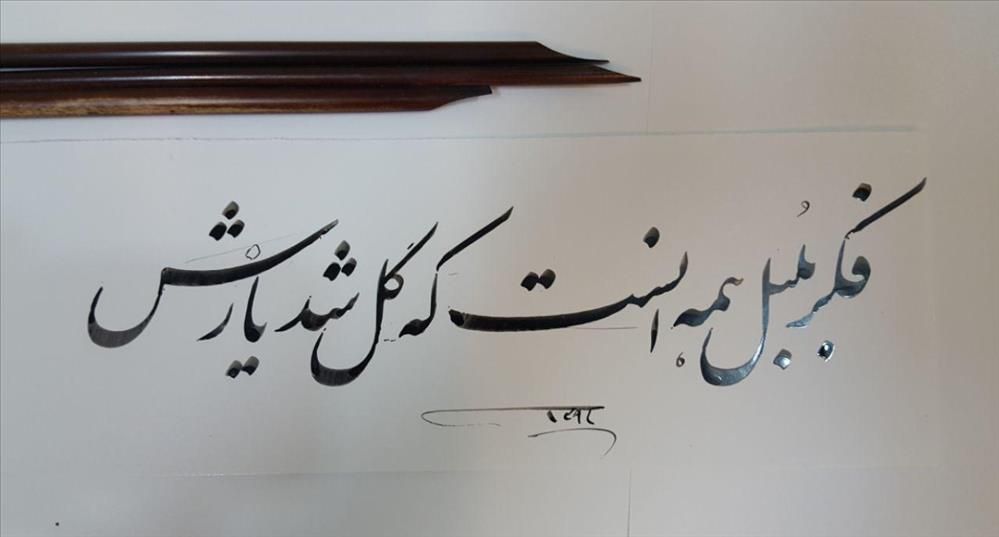 فکر بُلبل همه انست که گل شد یارش